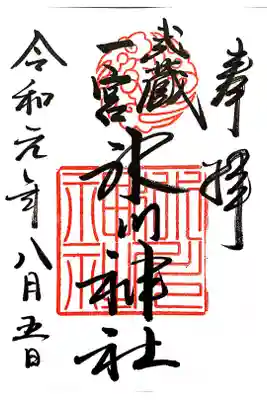 奉拝
武蔵
一宮
氷川神社
氷川神社
令和元年八月五日